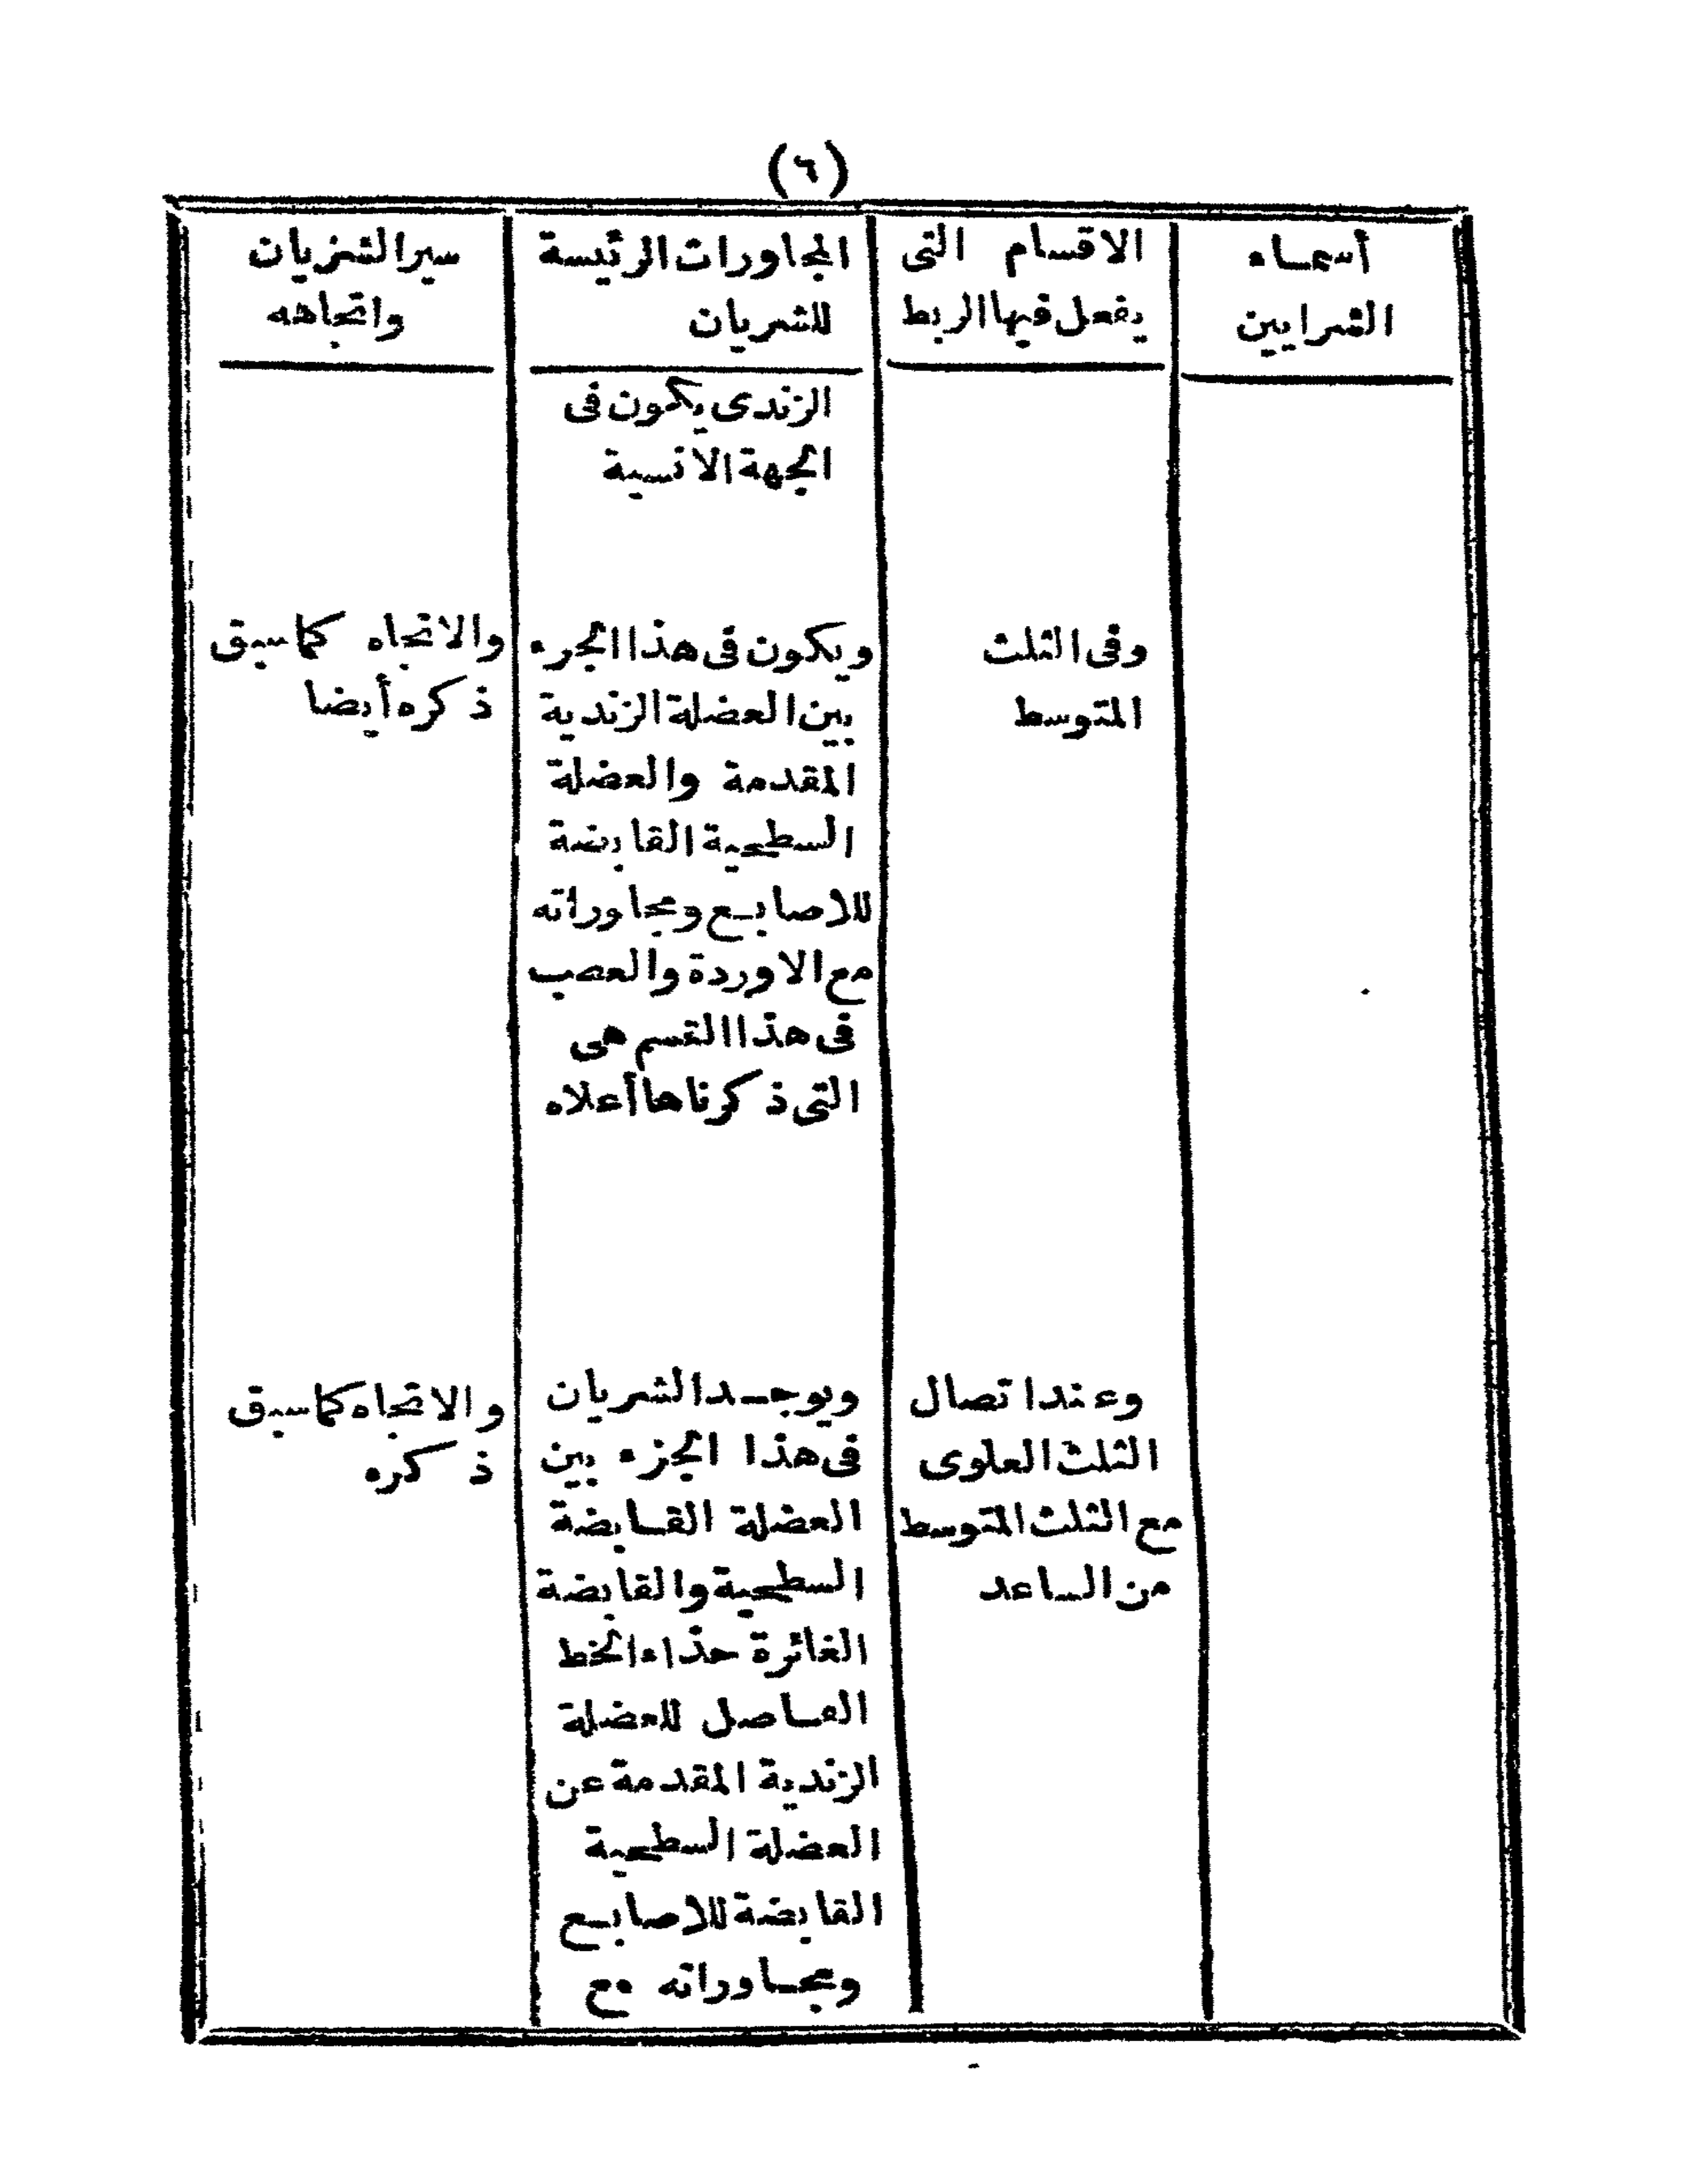 (٦)
أسماء
الشرايين
الاقسام التى
يفعل فيها الربط
المجاورات الرئيسة
للشريان
سير الشريان
واتجاهه
الزندى يكون فى
الجهة الانسية
وفى الثلث
المتوسط
ويكون فى هذا الجزء
بين العضلة الزندية
المقدمة والعضلة
السطحية القابضة
للاصابع ومجاوراته
مع الاوردة والعصب
فى هذا القسم هى
التى ذكرناها أعلاه
والاتجاه كما سبق
ذكره أيضا
وعند اتصال
الثلث العلوى
مع الثلث المتوسط
من الساعد
ويوجد الشريان
فى هذا الجزء بين
العضلة القابضة
السطحية والقابضة
الغائرة حذاء الخط
الفاصل للعضلة
الزندية المقدمة عن
العضلة السطحية
القابضة للاصابع
ومجاوراته مع
والاتجاه كما سبق
ذكره